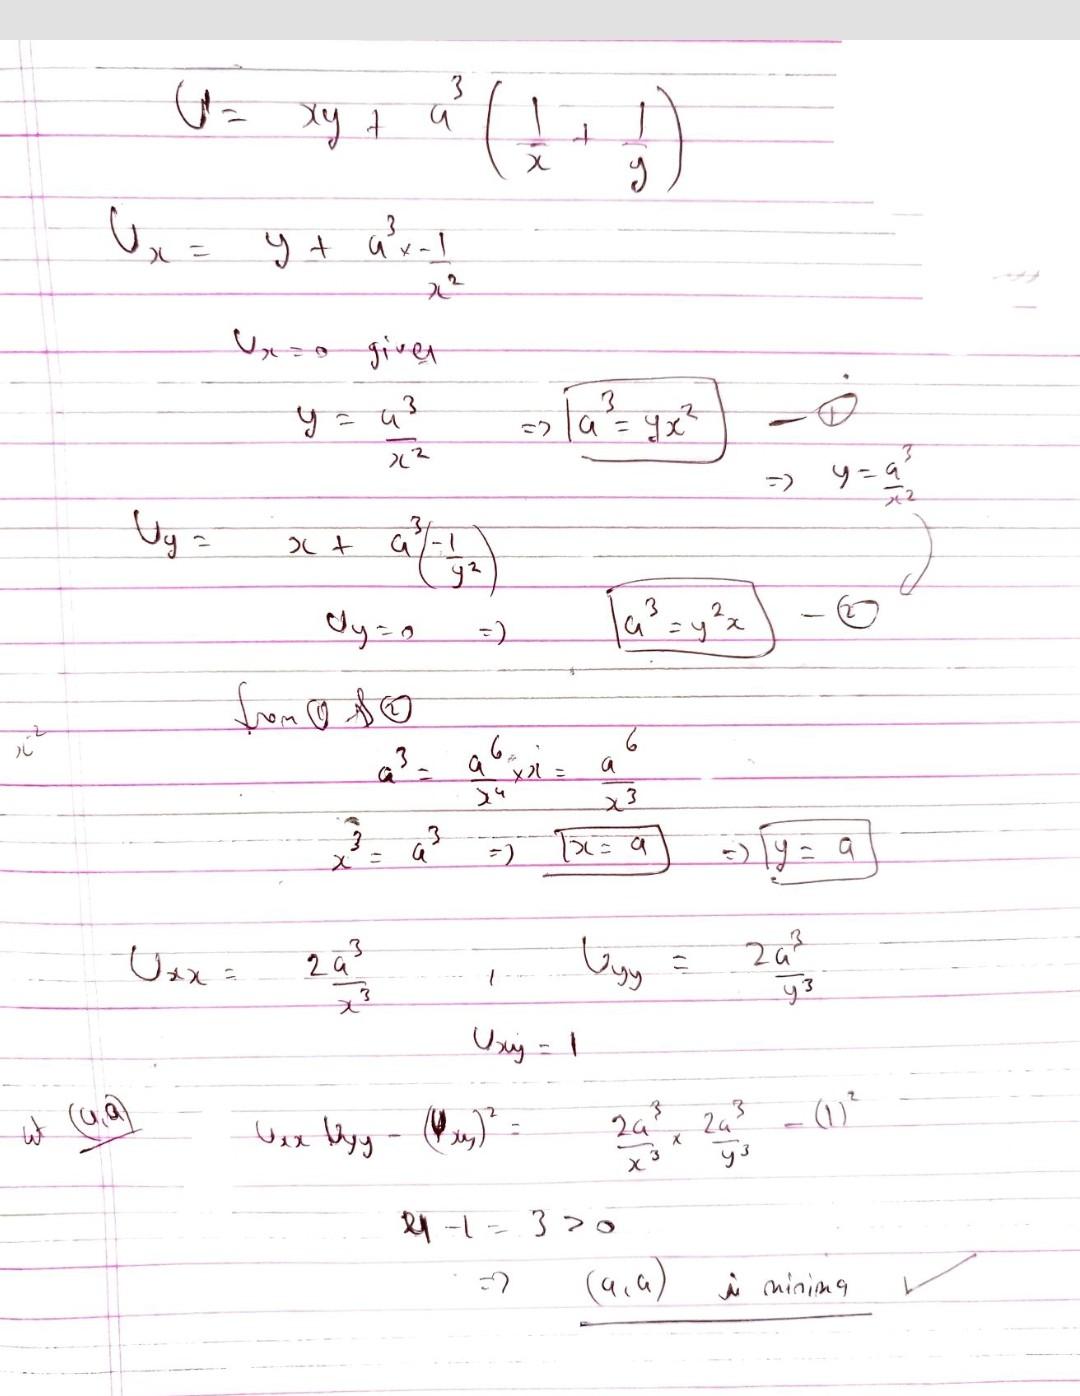 U = xy + a³ (1/x + 1/y)
Ux = y + a³ × -1/x²
Ux = 0 gives
y = a³/x² => a³ = yx² - ①
=> y = a³/x²
Uy = x + a³(-1/y²)
Uy = 0 => a³ = y²x - ②
from ① & ②
x²
a³ = a⁶/x⁴ × x = a⁶/x³
x³ = a³ => x = a => y = a
Uxx = 2a³/x³ , Uyy = 2a³/y³
Uxy = 1
at (a,a) Uxx Uyy - (Uxy)² = 2a³/x³ × 2a³/y³ - (1)²
4 - 1 = 3 > 0
=> (a,a) is minima ✓